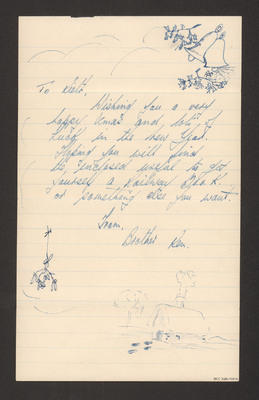 To Keith,
Wishing you a very
happy Xmas and lots of
luck in the new year.
Hoping you will find
the enclosed useful to get
yourself a Railway Book
or something else you want.
From,
Brother Ken.